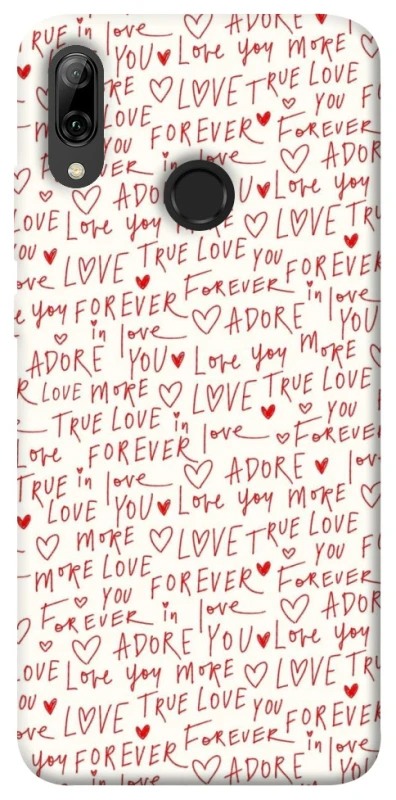 TRUE in love YOU Love you MORE ADORE
LOVE TRUE LOVE
MORE LOVE FOREVER YOU
FOREVER in love FOREVER
ADORE YOU Love you
LOVE Love you MORE LOVE TRU
YOU LOVE TRUE LOVE YOU FOREVER
love FOREVER in love
e you FOREVER ADORE YOU
in love
ADORE YOU Love you MORE
R LOVE MORE LOVE TRUE LOVE
TRUE LOVE in love YOU
Love FOREVER FOREVER
TRUE in love ADORE lov
LOVE YOU Love you MORE
MORE LOVE TRUE LOVE
MORE LOVE FOREVER YOU F
FOREVER in love FOREVER
ADORE YOU Love you ADOR
LOVE Love you MORE LOVE TRU
OU LOVE TRUE LOVE YOU FOREVER
ove FOREVER in love
you FOREVER ADORE YOU
in love